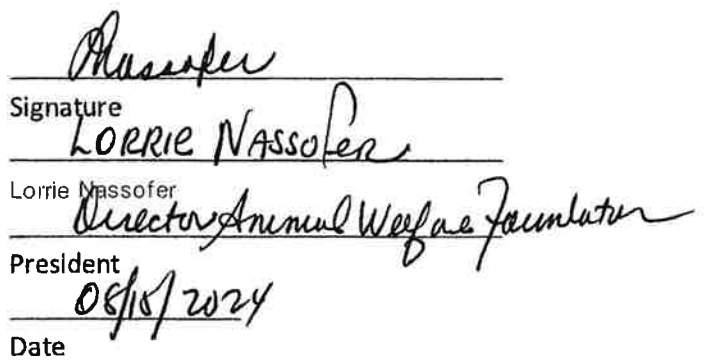 Nassofer
Signature
LORRIE NASSOFER
Lorrie Nassofer
Director Animal Welfare Foundation
President
08/15/2024
Date